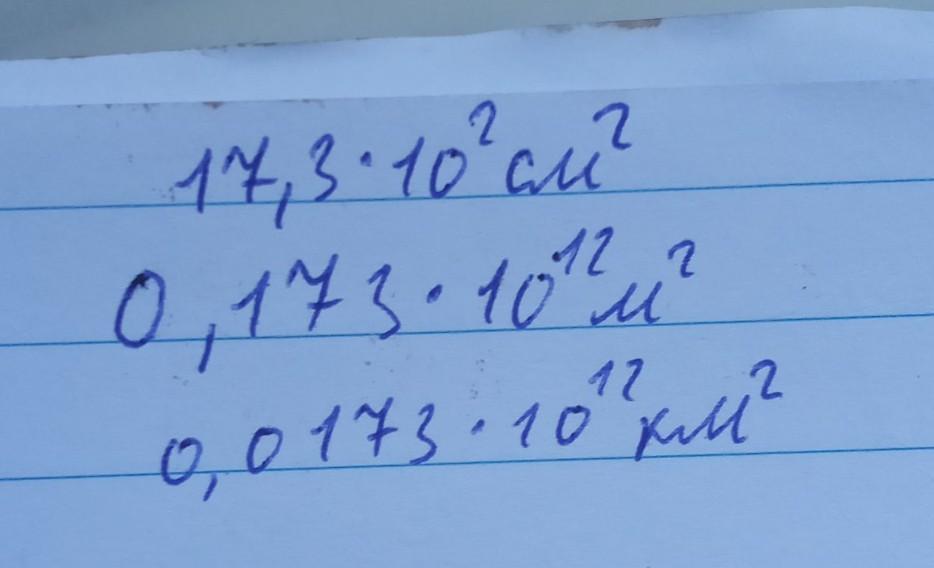 17,3·10² см²
0,173·10¹² м²
0,0173·10¹² км²